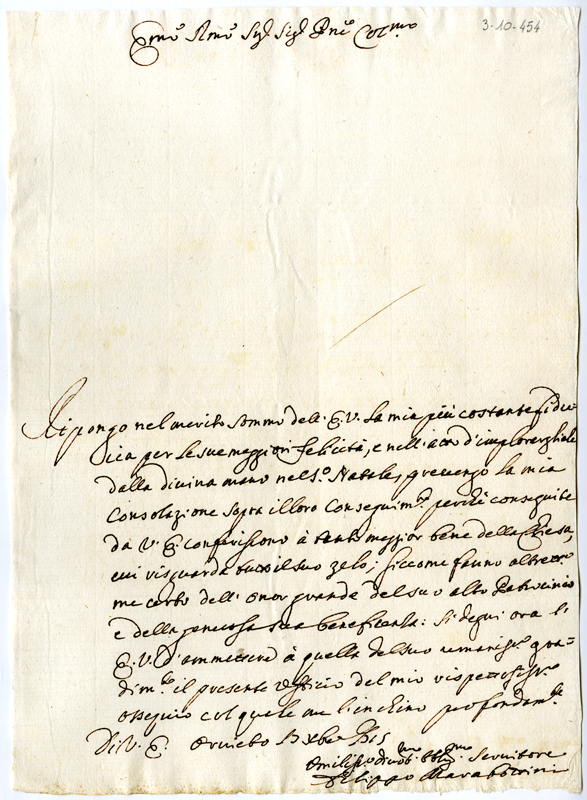 3-10-454
Em͞o Rm͞o Sig.r Sig.r Pne Col.mo
Ripongo nel merito sommo dell'E.V. la mia più costante fidu-
cia per le sue maggiori felicità, e nell'atto d'implorargliele
dalla divina mano nel S.o Natale, prevengo la mia
consolazione sopra il loro conseguim.to perchè conseguite
da V.E. conferiscono à maggior bene della Chiesa,
cui risguarda tutto il suo zelo; siccome fanno altret.to
me certo dell'onor grande del suo alto Patrocinio
e della generosa sua beneficenza: Si degni ora l'
E.V. d'ammettere à quella del suo umaniss.o gra-
dim.to il presente Uffizio del mio rispettosiss.o
ossequio col quale me l'inchino profondam.te
Di V.E. Orvieto Xbre
Umiliss.o divot.mo obblig.mo Servitore
Filippo